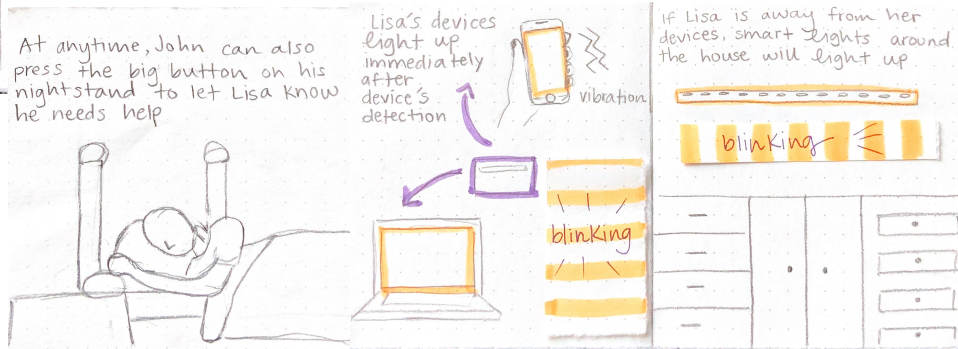 At anytime, John can also
press the big button on his
nightstand to let Lisa know
he needs help
Lisa's devices
light up
immediately
after
device's
detection
vibration
blinking
If Lisa is away from her
devices, smart lights around
the house will light up
blinking